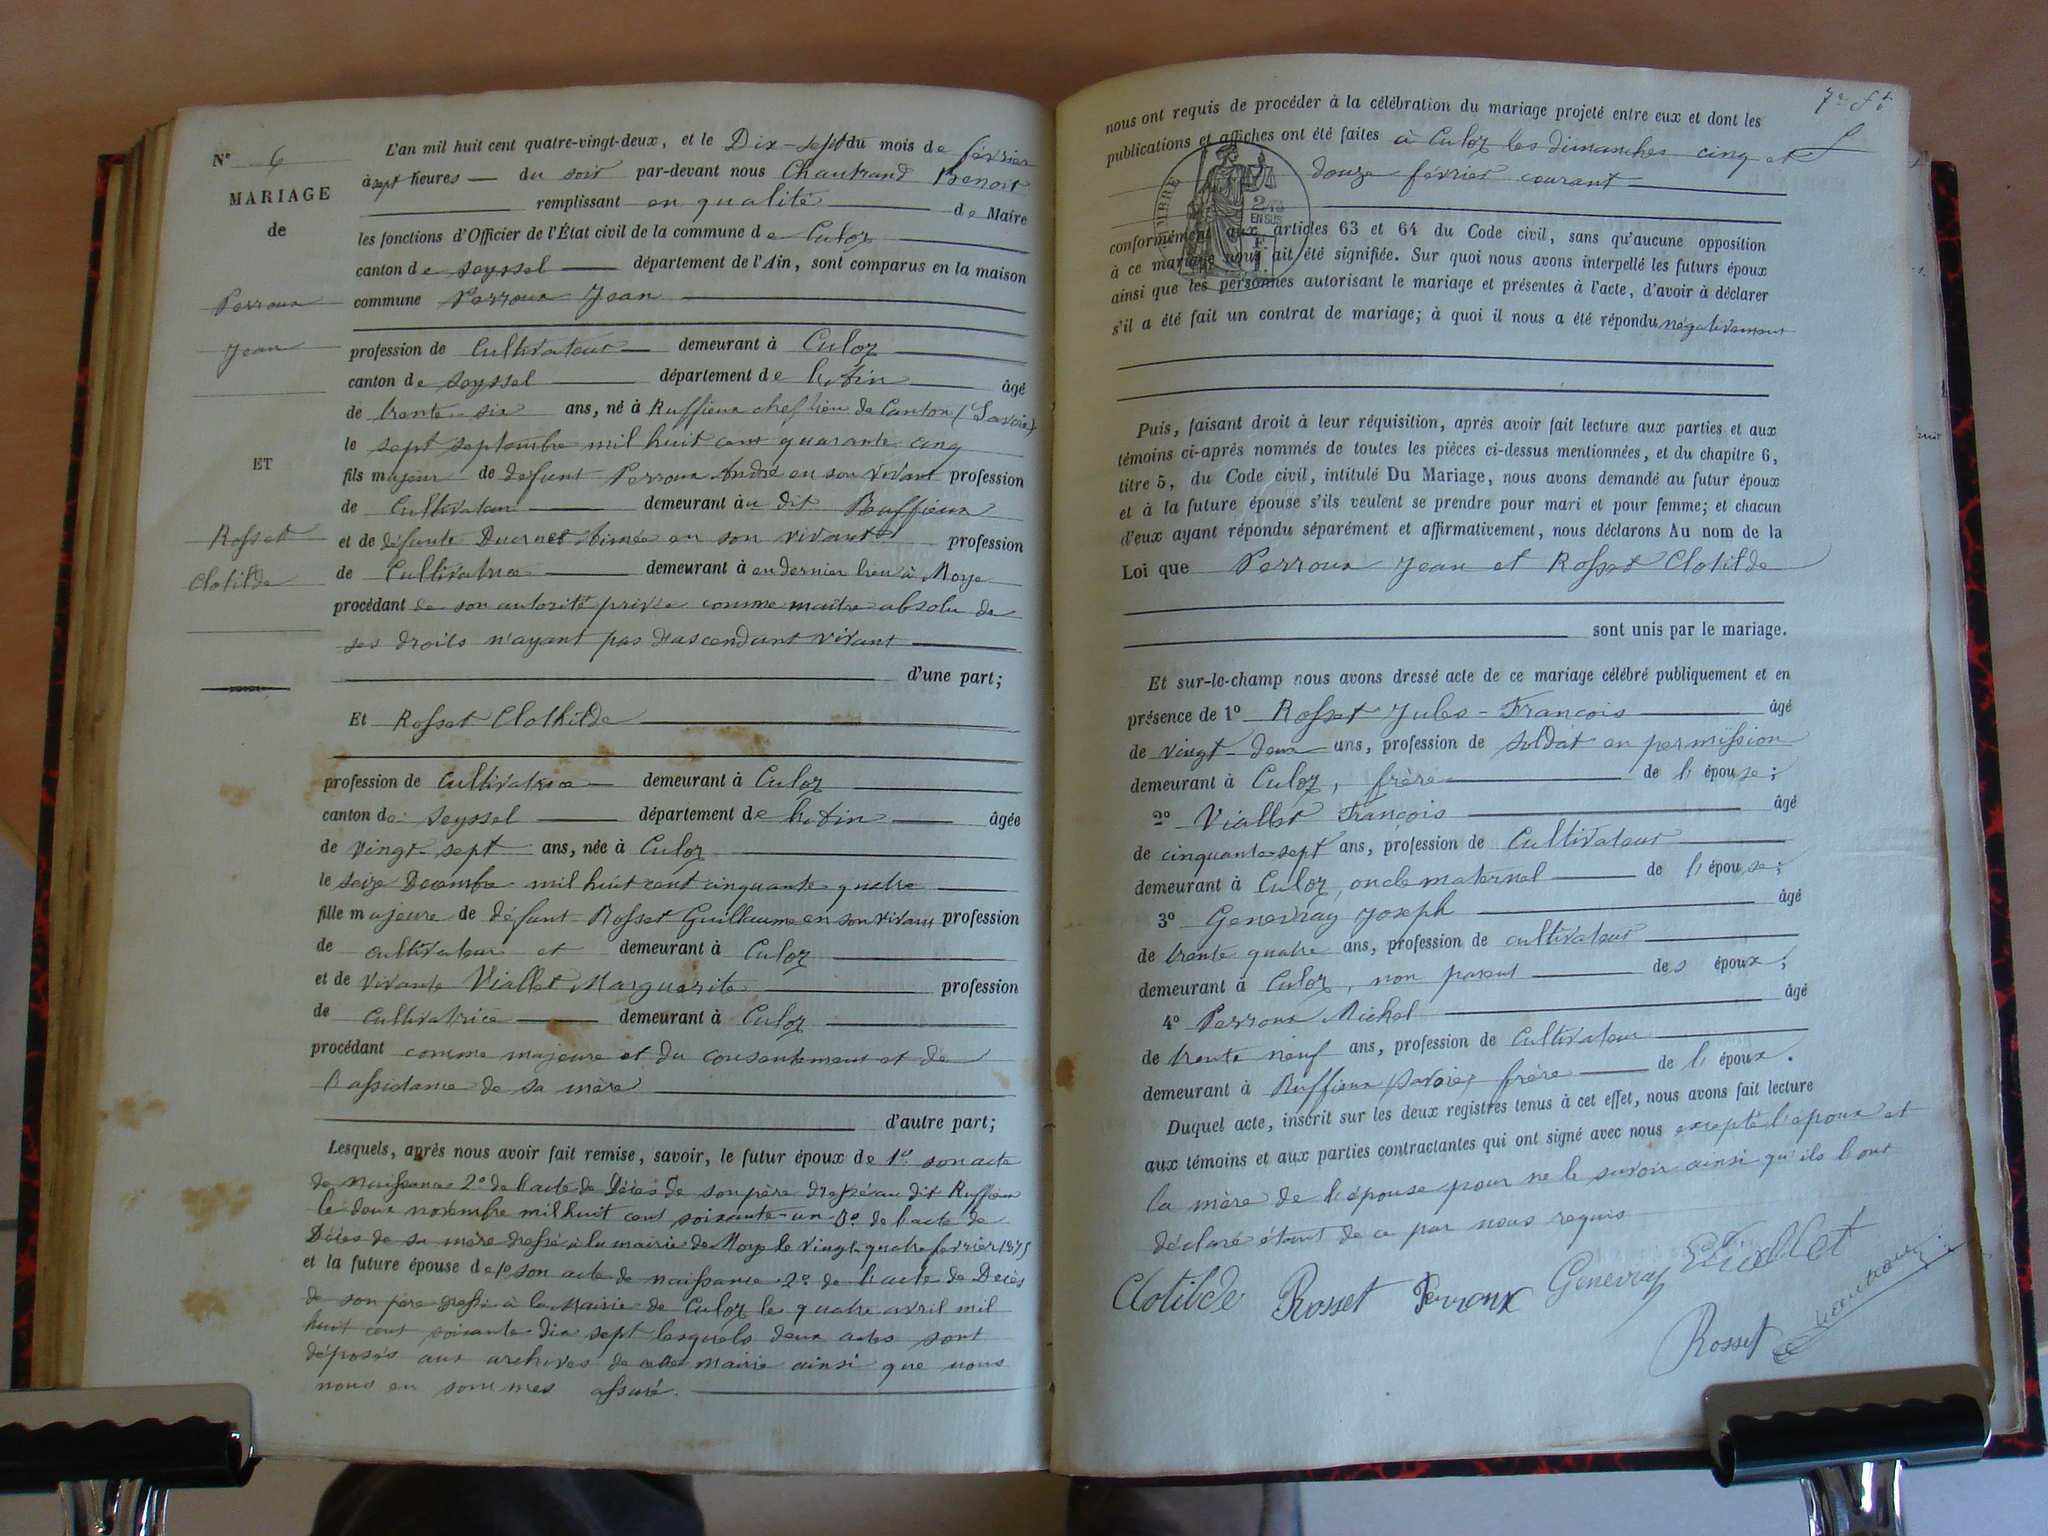 N° 6
MARIAGE
de
Perroux
Jean
ET
Rosset
Clotilde
L'an mil huit cent quatre-vingt-deux, et le Dix-sept du mois de février
à sept heures du soir par-devant nous Chautrand Benoit
remplissant en qualité de Maire
les fonctions d'Officier de l'État civil de la commune de Culoz
canton de Seyssel département de l'Ain, sont comparus en la maison
commune Perroux Jean
profession de Cultivateur demeurant à Culoz
canton de Seyssel département de L'Ain âgé
de trente-six ans, né à Ruffieux chef lieu de Canton (Savoie)
le sept septembre mil huit cent quarante cinq
fils majeur de défunt Perroux André en son vivant profession
de Cultivateur demeurant au dit Ruffieux
et de défunte Ducruet Aimée en son vivant profession
de Cultivatrice demeurant à en dernier lieu à Moye
procédant de son autorité privée comme maitre absolu de
ses droits n'ayant pas d'ascendant vivant
d'une part;
Et Rosset Clothilde
profession de Cultivatrice demeurant à Culoz
canton de Seyssel département de L'Ain âgée
de Vingt-sept ans, née à Culoz
le seize Décembre mil huit cent cinquante quatre
fille majeure de défunt Rosset Guillaume en son vivant profession
de cultivateur et demeurant à Culoz
et de Vivante Viallet Marguerite profession
de Cultivatrice demeurant à Culoz
procédant comme majeure et du consentement et de
l'assistance de sa mère
d'autre part;
Lesquels, après nous avoir fait remise, savoir, le futur époux de 1° son acte
de naissance 2° de l'acte de Décès de son père dressé au dit Ruffieux
le deux novembre mil huit cent soixante-un 3° de l'acte de
Décès de sa mère dressé à la mairie de Moye le vingt-quatre février 1875
et la future épouse de 1° son acte de naissance 2° de l'acte de Décès
de son père dressé à la Mairie de Culoz le quatre avril mil
huit cent soixante-dix sept lesquels deux actes sont
déposés aux archives de cette Mairie ainsi que nous
nous en sommes assuré.
nous ont requis de procéder à la célébration du mariage projeté entre eux et dont les
publications et affiches ont été faites à Culoz les dimanches cinq et
douze février courant
conformément aux articles 63 et 64 du Code civil, sans qu'aucune opposition
à ce mariage nous ait été signifiée. Sur quoi nous avons interpellé les futurs époux
ainsi que les personnes autorisant le mariage et présentes à l'acte, d'avoir à déclarer
s'il a été fait un contrat de mariage; à quoi il nous a été répondu négativement
Puis, faisant droit à leur réquisition, après avoir fait lecture aux parties et aux
témoins ci-après nommés de toutes les pièces ci-dessus mentionnées, et du chapitre 6,
titre 5, du Code civil, intitulé Du Mariage, nous avons demandé au futur époux
et à la future épouse s'ils veulent se prendre pour mari et pour femme; et chacun
d'eux ayant répondu séparément et affirmativement, nous déclarons Au nom de la
Loi que Perroux Jean et Rosset Clotilde
sont unis par le mariage.
Et sur-le-champ nous avons dressé acte de ce mariage célébré publiquement et en
présence de 1° Rosset Jules-François âgé
de vingt-deux ans, profession de soldat en permission
demeurant à Culoz, frère de l'épouse;
2° Viallet François âgé
de cinquante-sept ans, profession de Cultivateur
demeurant à Culoz, oncle maternel de l'épouse;
3° Genevray Joseph âgé
de trente quatre ans, profession de cultivateur
demeurant à Culoz, non parent des époux;
4° Perroux Michel âgé
de trente neuf ans, profession de Cultivateur
demeurant à Ruffieux (Savoie) frère de l'époux.
Duquel acte, inscrit sur les deux registres tenus à cet effet, nous avons fait lecture
aux témoins et aux parties contractantes qui ont signé avec nous excepté l'époux et
la mère de l'épouse pour ne le savoir ainsi qu'ils l'ont
déclaré étant de ce par nous requis
Clotilde Rosset Perroux Genevray Viallet
Rosset